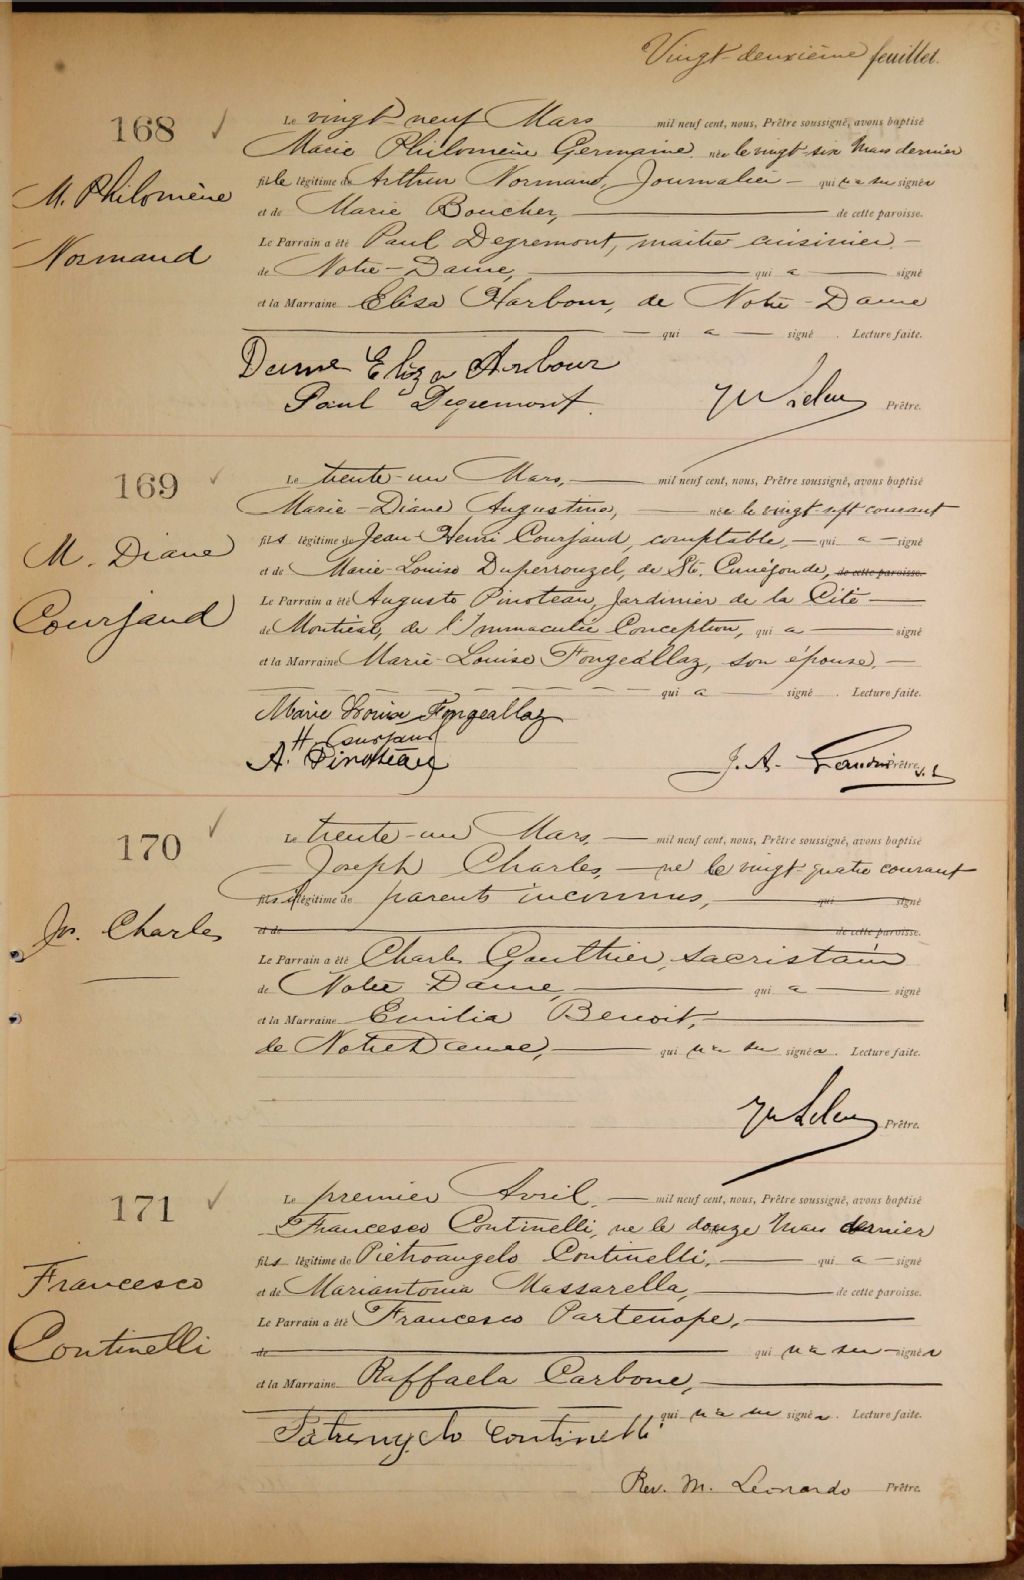 Vingt-deuxième feuillet.
168
M. Philomène
Normand
Le vingt neuf Mars mil neuf cent, nous, Prêtre soussigné, avons baptisé
Marie Philomène Germaine née le vingt six Mars dernier
fille légitime de Arthur Normand, Journalier - qui n'a su signer
et de Marie Boucher, de cette paroisse.
Le Parrain a été Paul Degremont, maitre cuisinier -
de Notre-Dame, qui a signé
et la Marraine Elisa Harbour, de Notre-Dame
qui a signé. Lecture faite.
Dame Eliza Arbour
Paul Degremont.
Prêtre.
169
M. Diane
Courjaud
Le trente-un Mars, mil neuf cent, nous, Prêtre soussigné, avons baptisé
Marie-Diane Augustine, née le vingt-sept courant
fils légitime de Jean-Henri Courjaud, comptable, - qui a signé
et de Marie-Louise Duperrouzel, de Ste. Cunégonde, de cette paroisse.
Le Parrain a été Auguste Pinoteau, Jardinier de la Cité
de Montréal, de l'Immaculée Conception, qui a signé
et la Marraine Marie-Louise Fongeallaz, son épouse, -
qui a signé. Lecture faite.
Marie Louise Fongeallaz
H. Courjaud
A. Pinoteau
J. A. Prêtre
170
Jos. Charles
Le trente-un Mars, mil neuf cent, nous, Prêtre soussigné, avons baptisé
Joseph Charles, - né le vingt-quatre courant
fils légitime de parents inconnus, qui signé
et de de cette paroisse.
Le Parrain a été Charles Gauthier, sacristain
de Notre Dame, qui a signé
et la Marraine Emilia Benoit,
de Notre Dame, qui n'a su signer. Lecture faite.
Prêtre.
171
Francesco
Continelli
Le premier Avril, mil neuf cent, nous, Prêtre soussigné, avons baptisé
Francesco Continelli, né le douze Mars dernier
fils légitime de Pietroangelo Continelli, qui a signé
et de Mariantonia Massarella, de cette paroisse.
Le Parrain a été Francesco Partenope,
de qui n'a su signer
et la Marraine Raffaela Carbone,
qui n'a su signer. Lecture faite.
Continelli
Rev. M. Leonardo Prêtre.